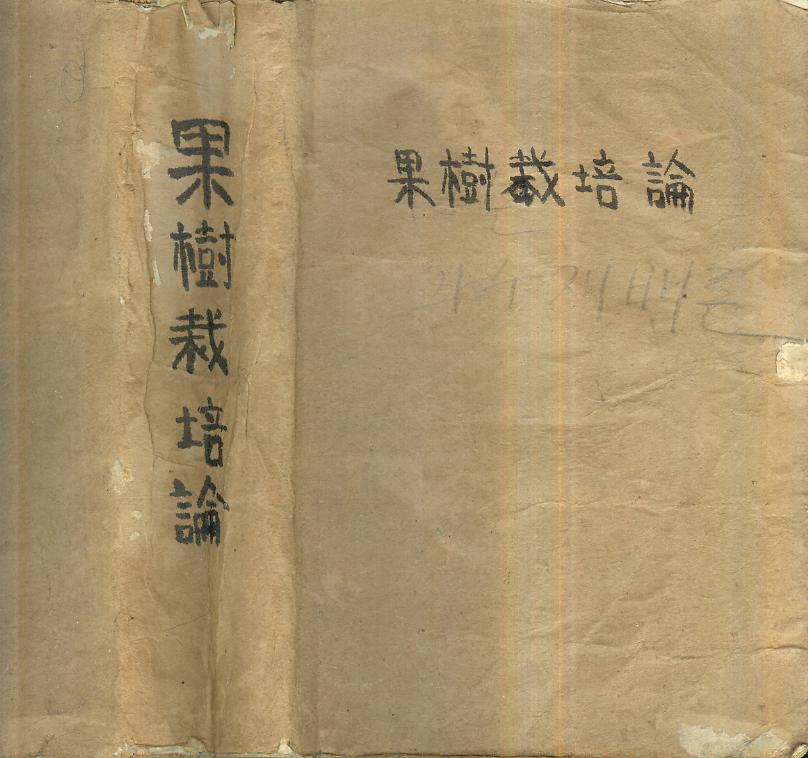 果樹栽培論
果樹栽培論
과수재배론